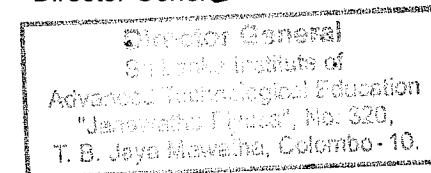 Director General
Director General
Sri Lanka Institute of
Advanced Technological Education
No. 320,
T. B. Jaya Mawatha, Colombo - 10.